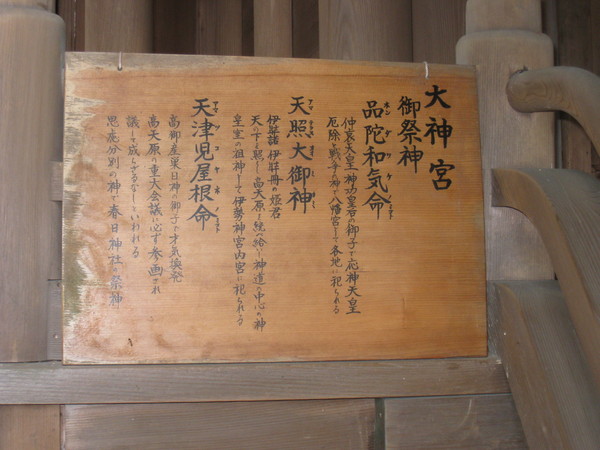 大神宮
御祭神
品陀和気命
仲哀天皇、神功皇后の御子で応神天皇
厄除と戦争の神で八幡宮として各地に祀られる
天照大御神
伊弉諾、伊弉冊の姫君
天の下を照し高天原を統べ給い神道の中心の神
皇室の祖神として伊勢神宮内宮に祀られる
天津児屋根命
高御産巣日神の御子で才気煥発
高天原の重大会議に必ず参画され
議して成らざるなしといわれる
思慮分別の神で春日神社の祭神